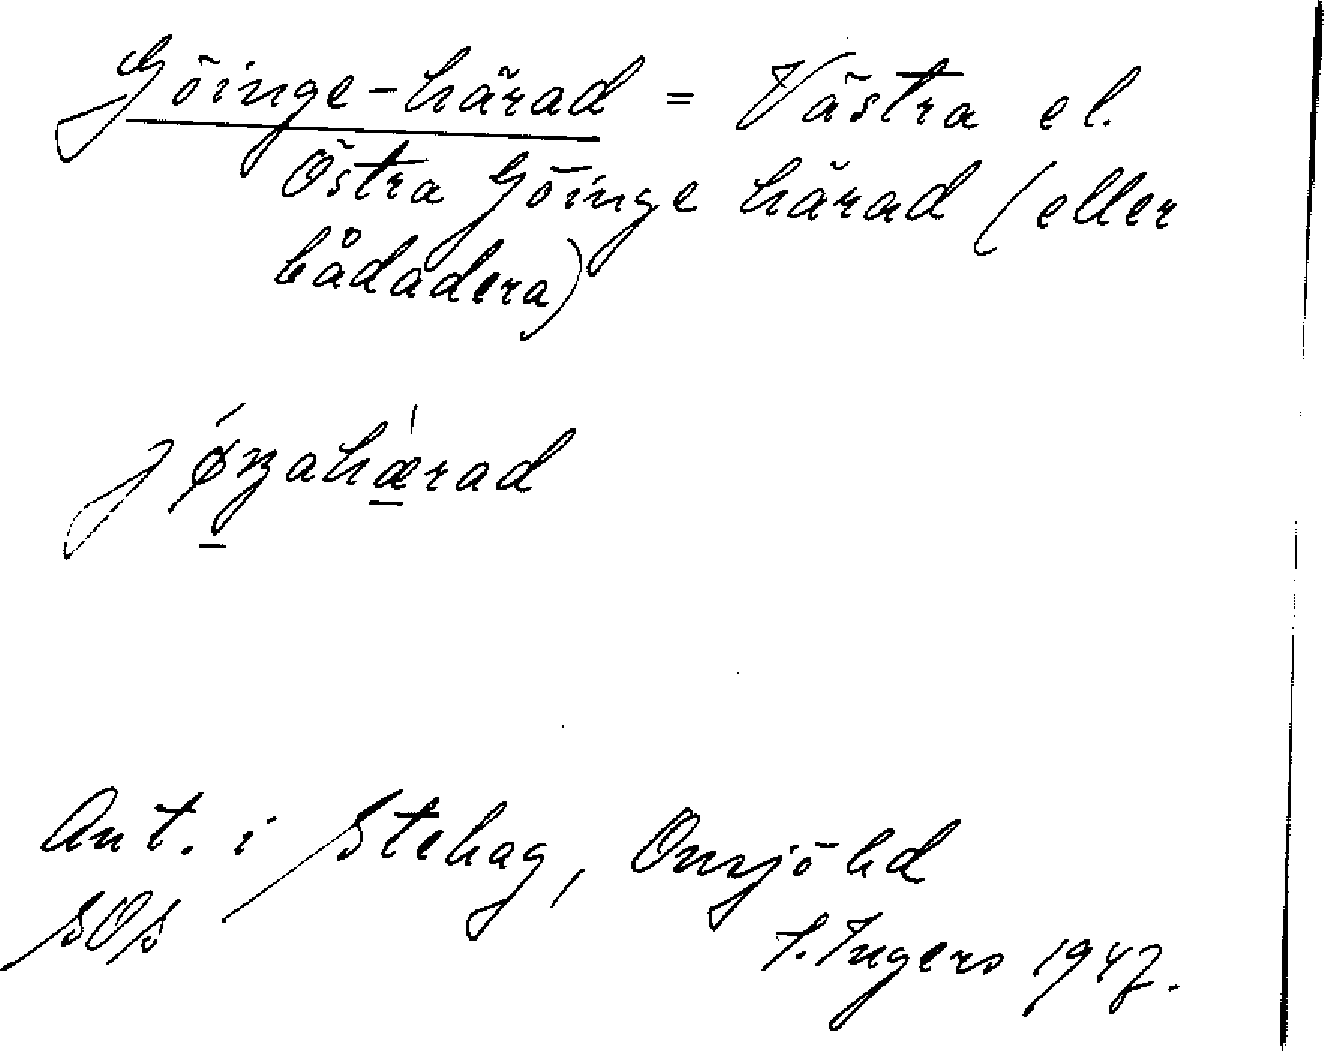 Göinge-härad = Västra el.
Östra Göinge härad (eller
bådadera)
Ant. i Stehag, Onsjö hd
I. Ingers 1947.